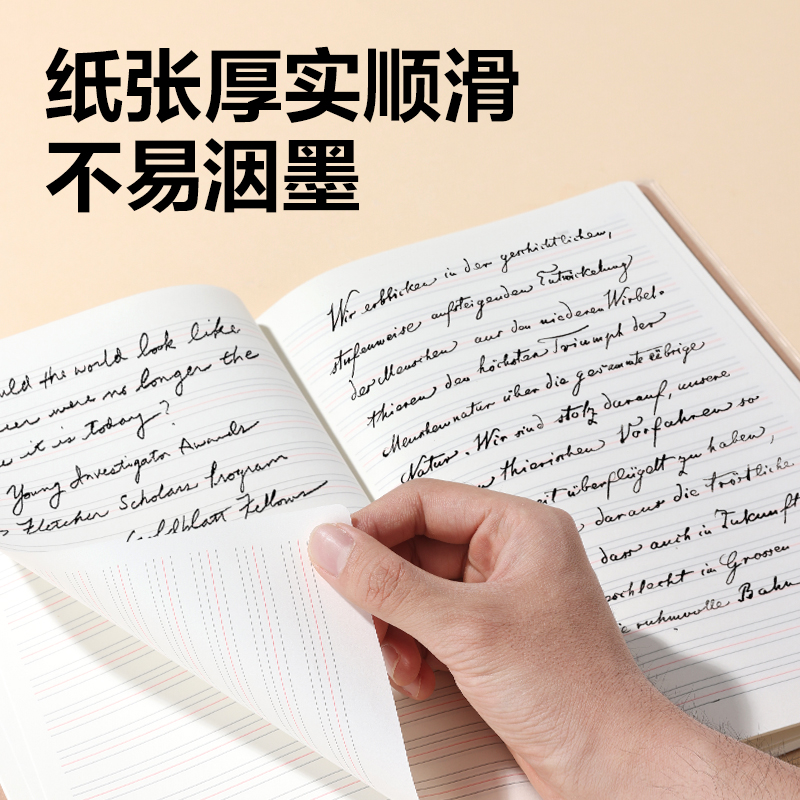 纸张厚实顺滑
不易洇墨
uld the world look like
were no longer the
it is today?
Young Investigator Awards
Fletcher Scholars Program
Goldblatt Fellows
Wir erblicken in der geschichtlichen,
stufenweise aufsteigenden Entwickelung
der Menschen aus den niederen Wirbel-
thieren den höchsten Triumph der
Menschennatur über die gesammte übrige
Natur. Wir sind stolz darauf, unsere
thierischen Vorfahren so
eit überflügelt zu haben,
daraus die tröstliche
dass auch in Zukunft
schlecht im Grossen
ruhmvolle Bahn